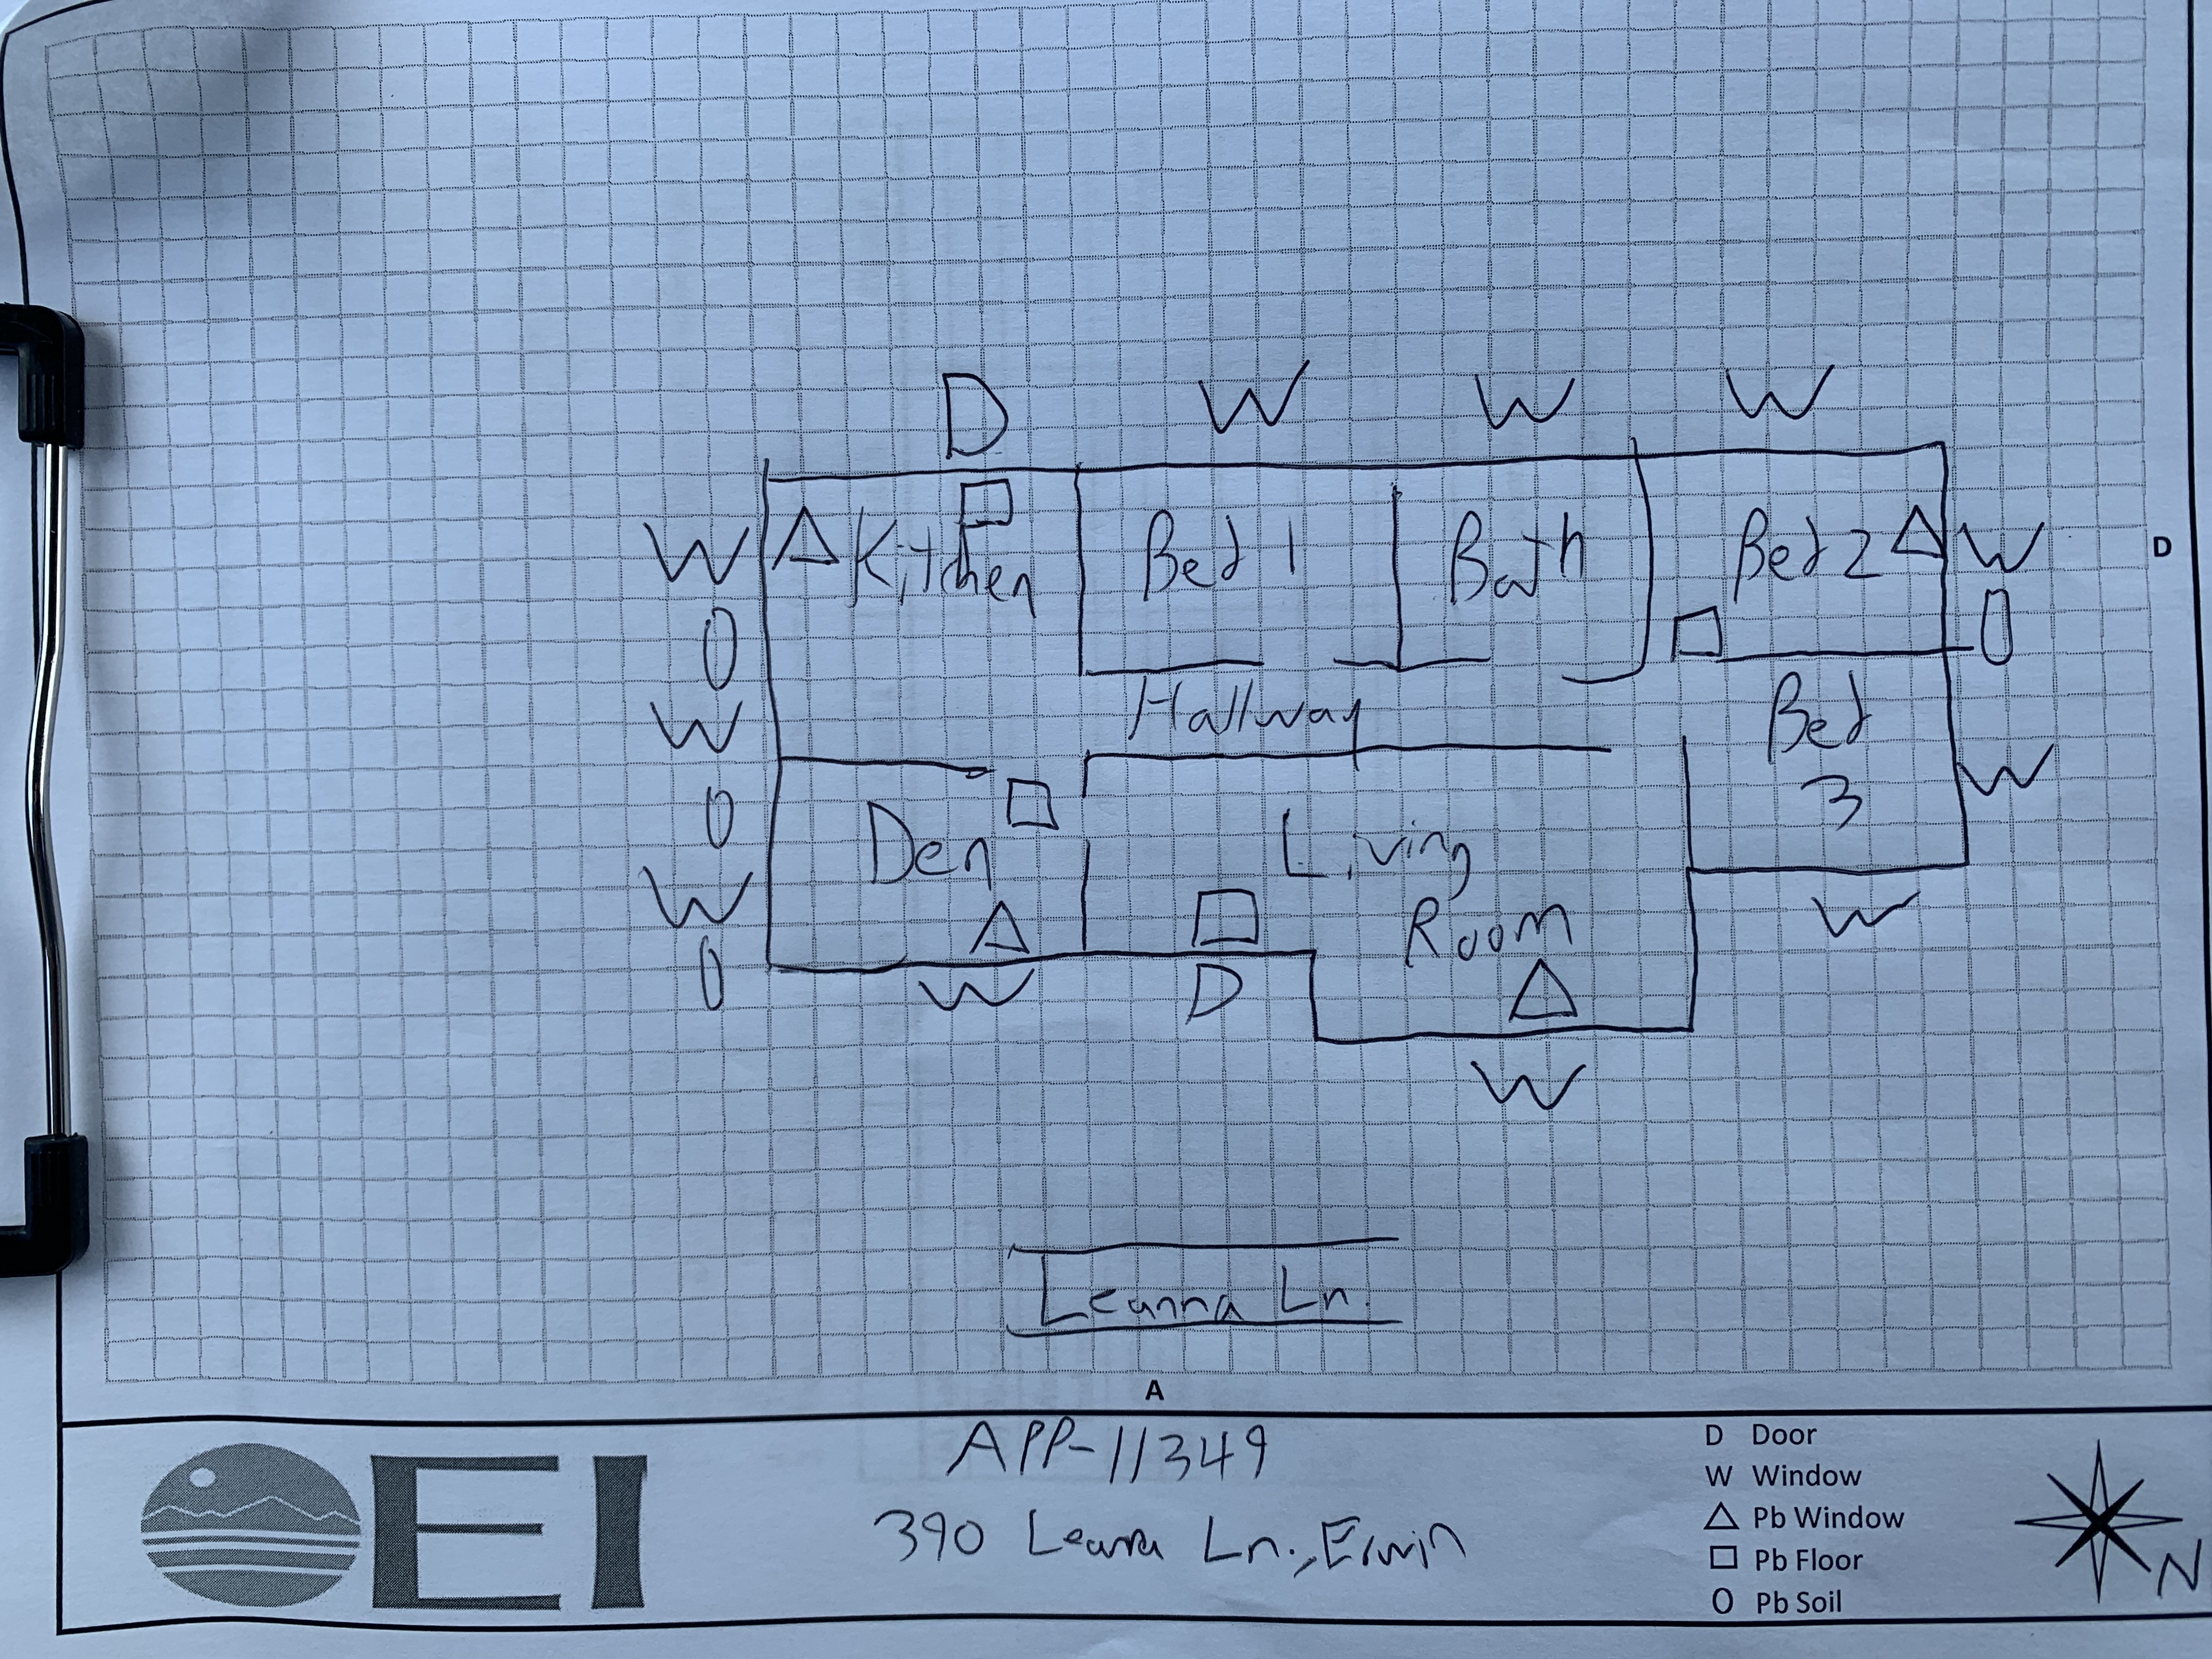 D W W W
W Kitchen Bed 1 Bath Bed 2 W D
O O
W Hallway Bed 3 W
O
W Den Living Room W
O W D
W
Leanna Ln.
A
EI
APP-11349
390 Leana Ln., Elwin
D Door
W Window
△ Pb Window
□ Pb Floor
O Pb Soil
N